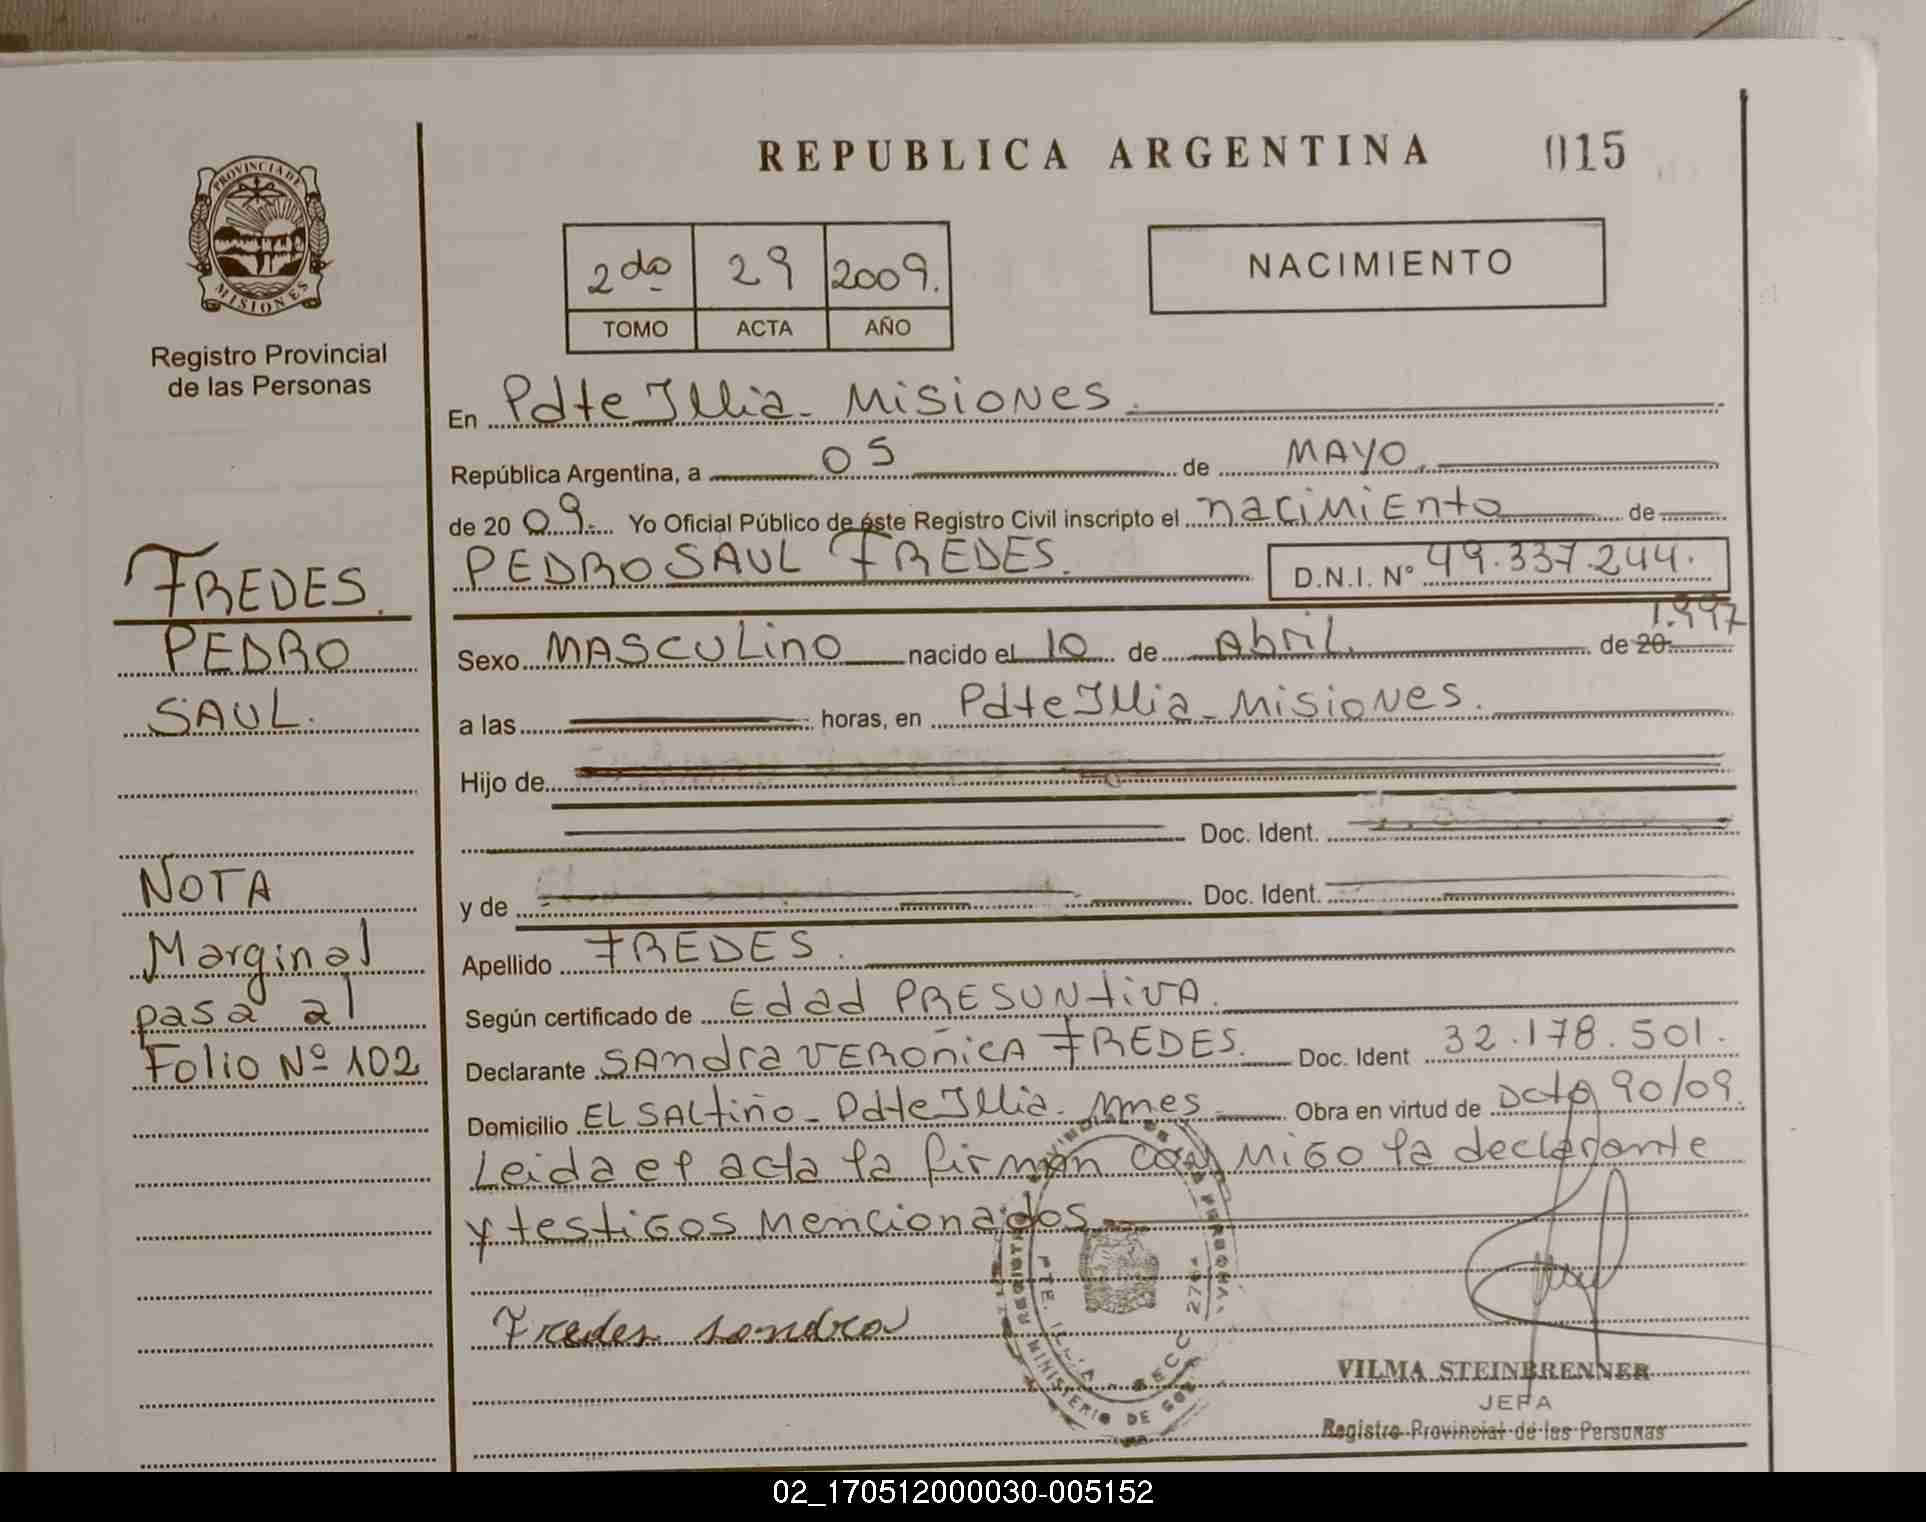 REPUBLICA ARGENTINA 015
PROVINCIA DE
MISIONES
Registro Provincial
de las Personas
2do 29 2009.
TOMO ACTA AÑO
NACIMIENTO
En Pdte Illia - Misiones.
República Argentina, a 05 de MAYO
de 20 09. Yo Oficial Público de éste Registro Civil inscripto el nacimiento de
PEDRO SAUL FREDES. D.N.I. N° 49.337.244.
Sexo MASCULINO nacido el 10 de Abril. de 20 1.997
a las horas, en Pdte Illia - Misiones.
Hijo de
Doc. Ident.
y de Doc. Ident.
Apellido FREDES.
Según certificado de Edad PRESUNTIVA.
Declarante SANdra VERONICA FREDES. Doc. Ident 32.178.501.
Domicilio EL SALtiño - Pdte Illia - Mnes Obra en virtud de Dcto 90/09.
Leida el acta la firman con migo la declarante
y testigos mencionados
Fredes sandra
FREDES.
PEDRO
SAUL.
NOTA
Marginal
pasa al
Folio Nº 102
PTE. ILLIA - SECC
MINISTERIO DE GOB
VILMA STEINBRENNER
JEFA
Registro Provincial de las Personas
02_170512000030-005152